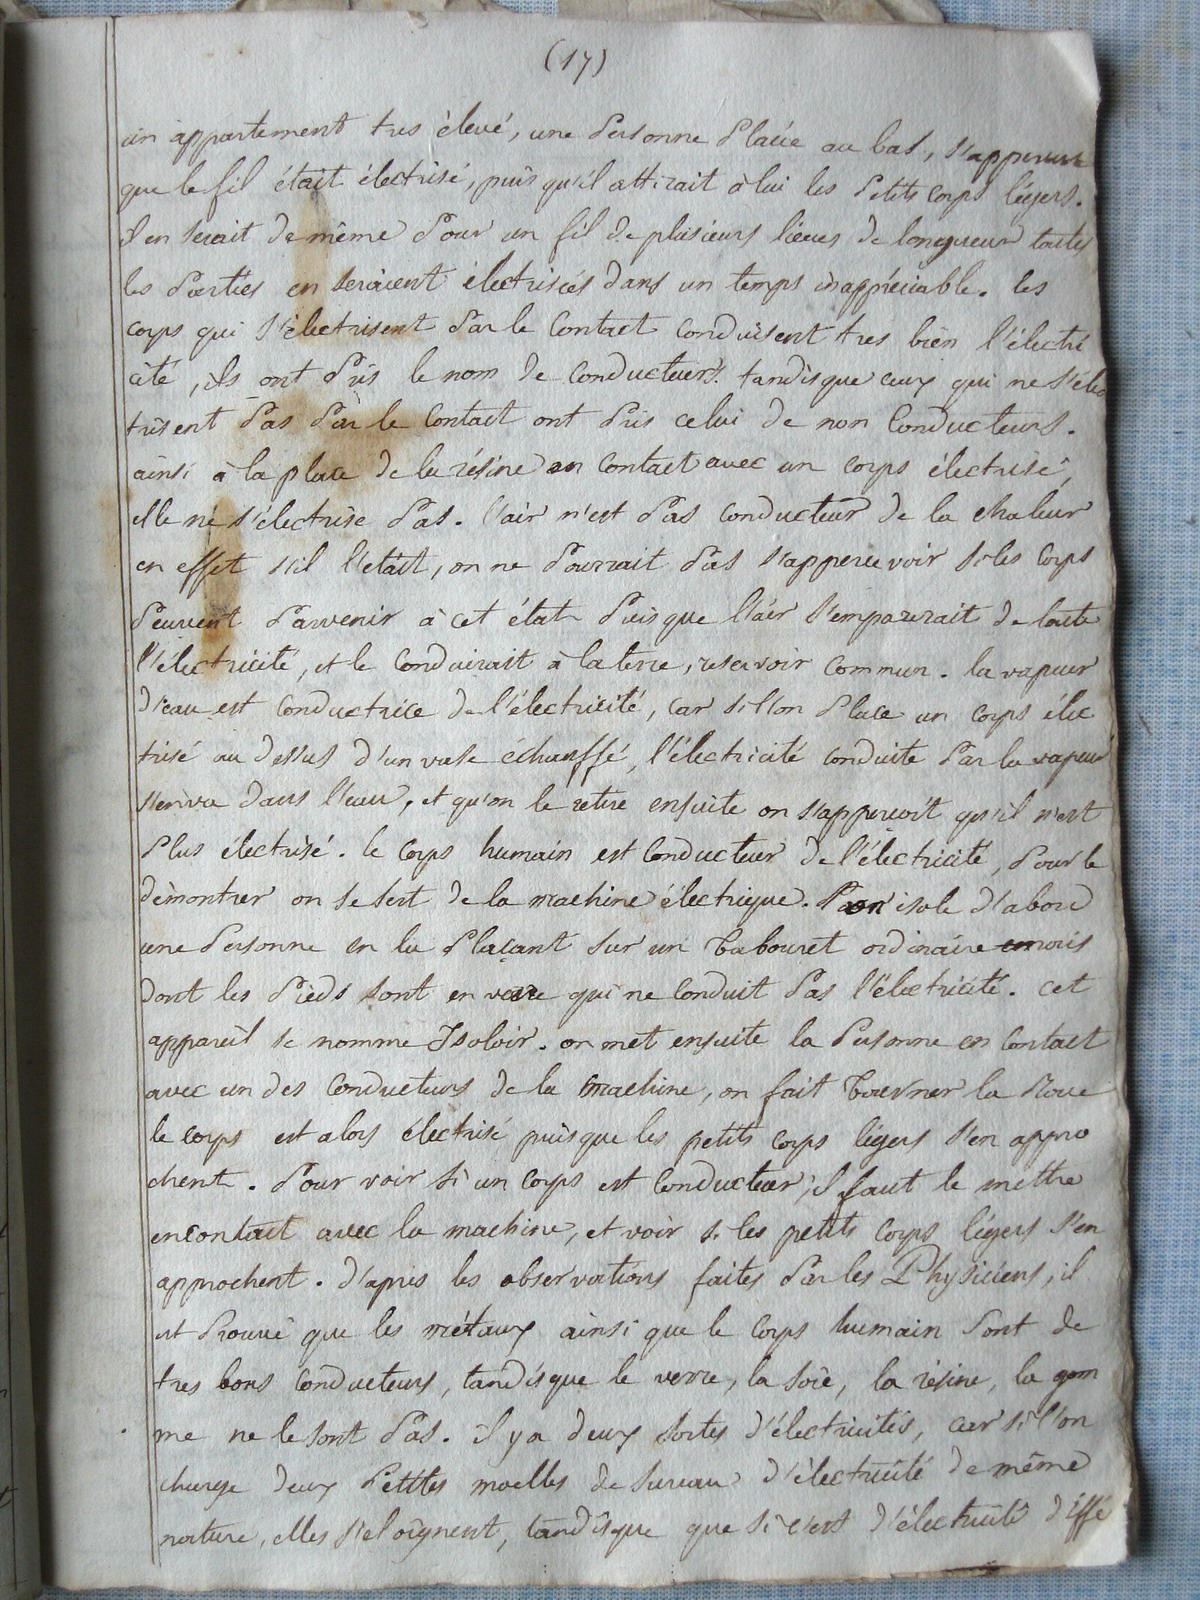 (17)
un appartement tres élevé, une Personne Placée au bas, s'apperçut
que le fil était électrisé, puis qu'il attirait à lui les Petits corps légers.
il en serait de même Pour un fil de plusieurs lieues de longueur toutes
les Parties en seraient électrisées dans un temps inappréciable. les
corps qui s'électrisent Par le Contact conduisent tres bien l'électri
cité, ils ont Pris le nom de Conducteurs. tandisque ceux qui ne s'élec
trisent Pas Par le Contact ont Pris celui de non Conducteurs.
ainsi à la place de la résine en Contact avec un corps électrisé,
elle ne s'électrise Pas. l'air n'est Pas Conducteur de la chaleur
en effet s'il l'etait, on ne Pourrait Pas s'appercevoir si les Corps
Peuvent Parvenir à cet état Puisque l'air s'emparerait de toute
l'électricité, et le Conduirait à la terre, reservoir Commun. la vapeur
d'eau est Conductrice de l'électricité, car si l'on Place un corps élec
trisé au dessus d'un vase échauffé, l'électricité conduite Par la vapeur
s'en va dans l'eau, et qu'on le retire ensuite on s'apperçoit qu'il n'est
Plus électrisé. le Corps humain est Conducteur de l'électricité, Pour le
démontrer on se sert de la machine électrique. on isole d'abord
une Personne en la Plaçant sur un Tabouret ordinaire mais
dont les Pieds sont en verre qui ne Conduit Pas l'électricité. cet
appareil se nomme Isoloir. on met ensuite la Personne en Contact
avec un des Conducteurs de la machine, on fait Tourner la Roue
le corps est alors électrisé puisque les petits corps légers s'en appro
chent. Pour voir si un Corps est Conducteur, il faut le mettre
en contact avec la machine, et voir si les petits Corps légers s'en
approchent. d'apres les observations faites Par les Physiciens, il
est Prouvé que les métaux ainsi que le Corps humain sont de
tres bons Conducteurs, tandisque le verre, la soie, la résine, la gom
me ne le sont Pas. il y a deux sortes d'électricités, car si l'on
charge deux Petites moelles de sureau d'électricité de même
nature, elles s'eloignent, tandisque que si c'est d'électricité diffé